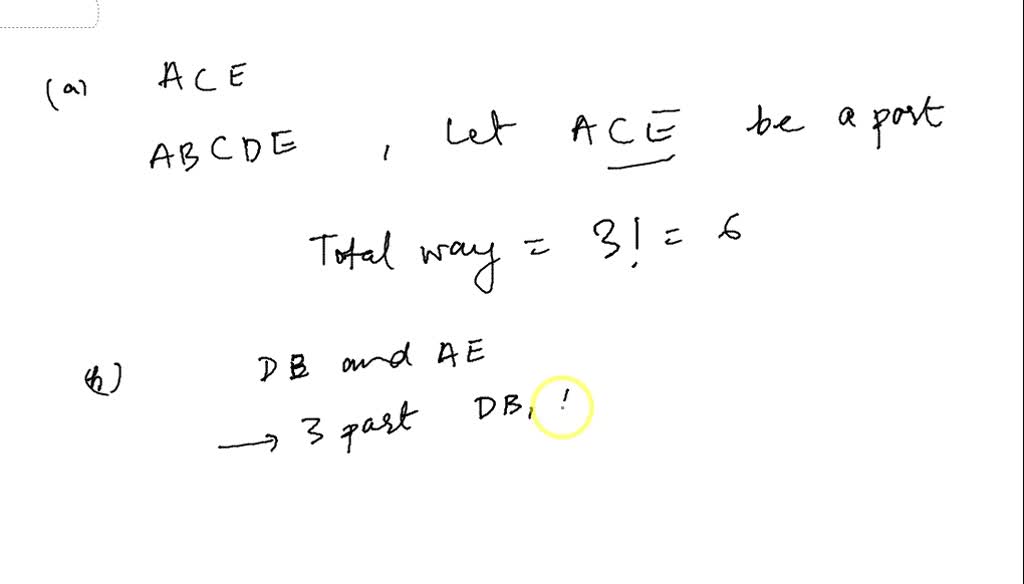 (a) ACE
ABCDE , Let ACE be a part
Total way = 3! = 6
(b) DB and AE
→ 3 part DB,